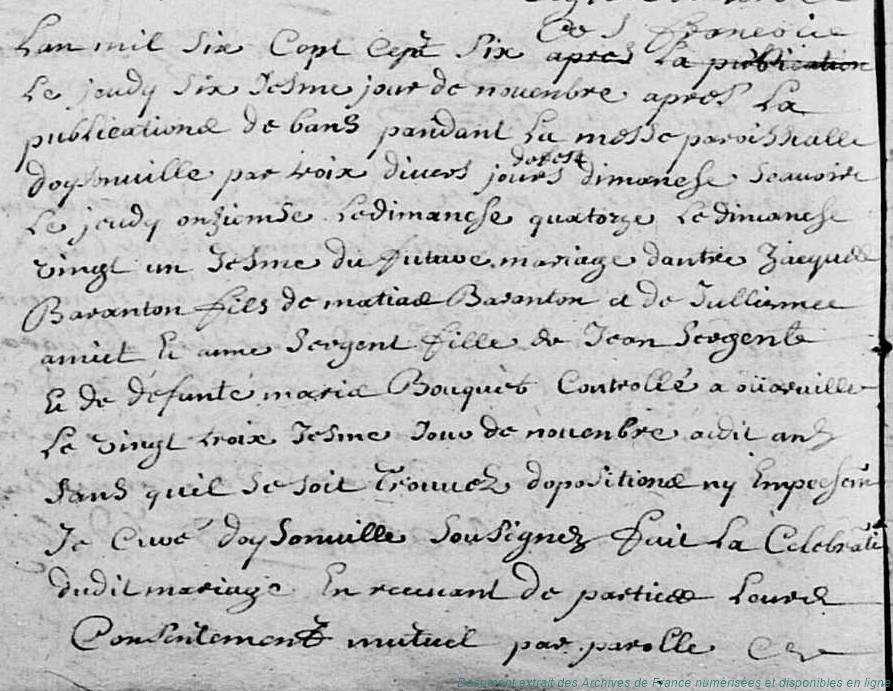 francois
Lan mil six Cent Cept six apres La publication
Le jeudy six Iesme jour de nouenbre apres La
publicationæ de bans pandant La messe paroissialle
doysonuille par troix diuers jours de feste dimanese scauoire
Le jeudy onziemse Ledimanese quatorze Ledimanese
vingt un Iesme du future mariage dantre Jacques
Baranton fils de matiæ Baranton et de Jullienne
amiet Et anne Sergent fille de Jean Sergente
Et de defunte mariæ Bouquet Controllé a oüaruille
Le vingt troix Iesme Jour de nouenbre audit an
sans quil se soit trouuez dopositionæ ny Empeschem
Je Curé doysonuille Sousignez fait La Celebrati
dudit mariage En receuant de partiees Leurs
Consentement mutuel par parolle
Document extrait des Archives de France numérisées et disponibles en ligne